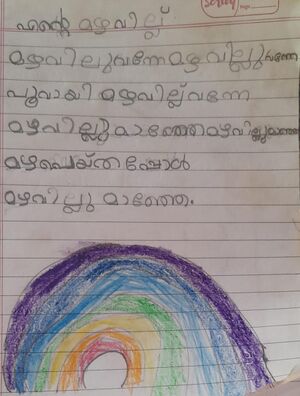 എന്റെ മഴവില്ല്
മഴവില്ലുവന്നേ മഴവില്ലുവന്നേ
പൂവായി മഴവില്ല് വന്നേ
മഴവില്ലുമാഞ്ഞേമഴവില്ലുമാഞ്ഞേ
മഴപെയ്തപ്പോൾ
മഴവില്ലു മാഞ്ഞേ.